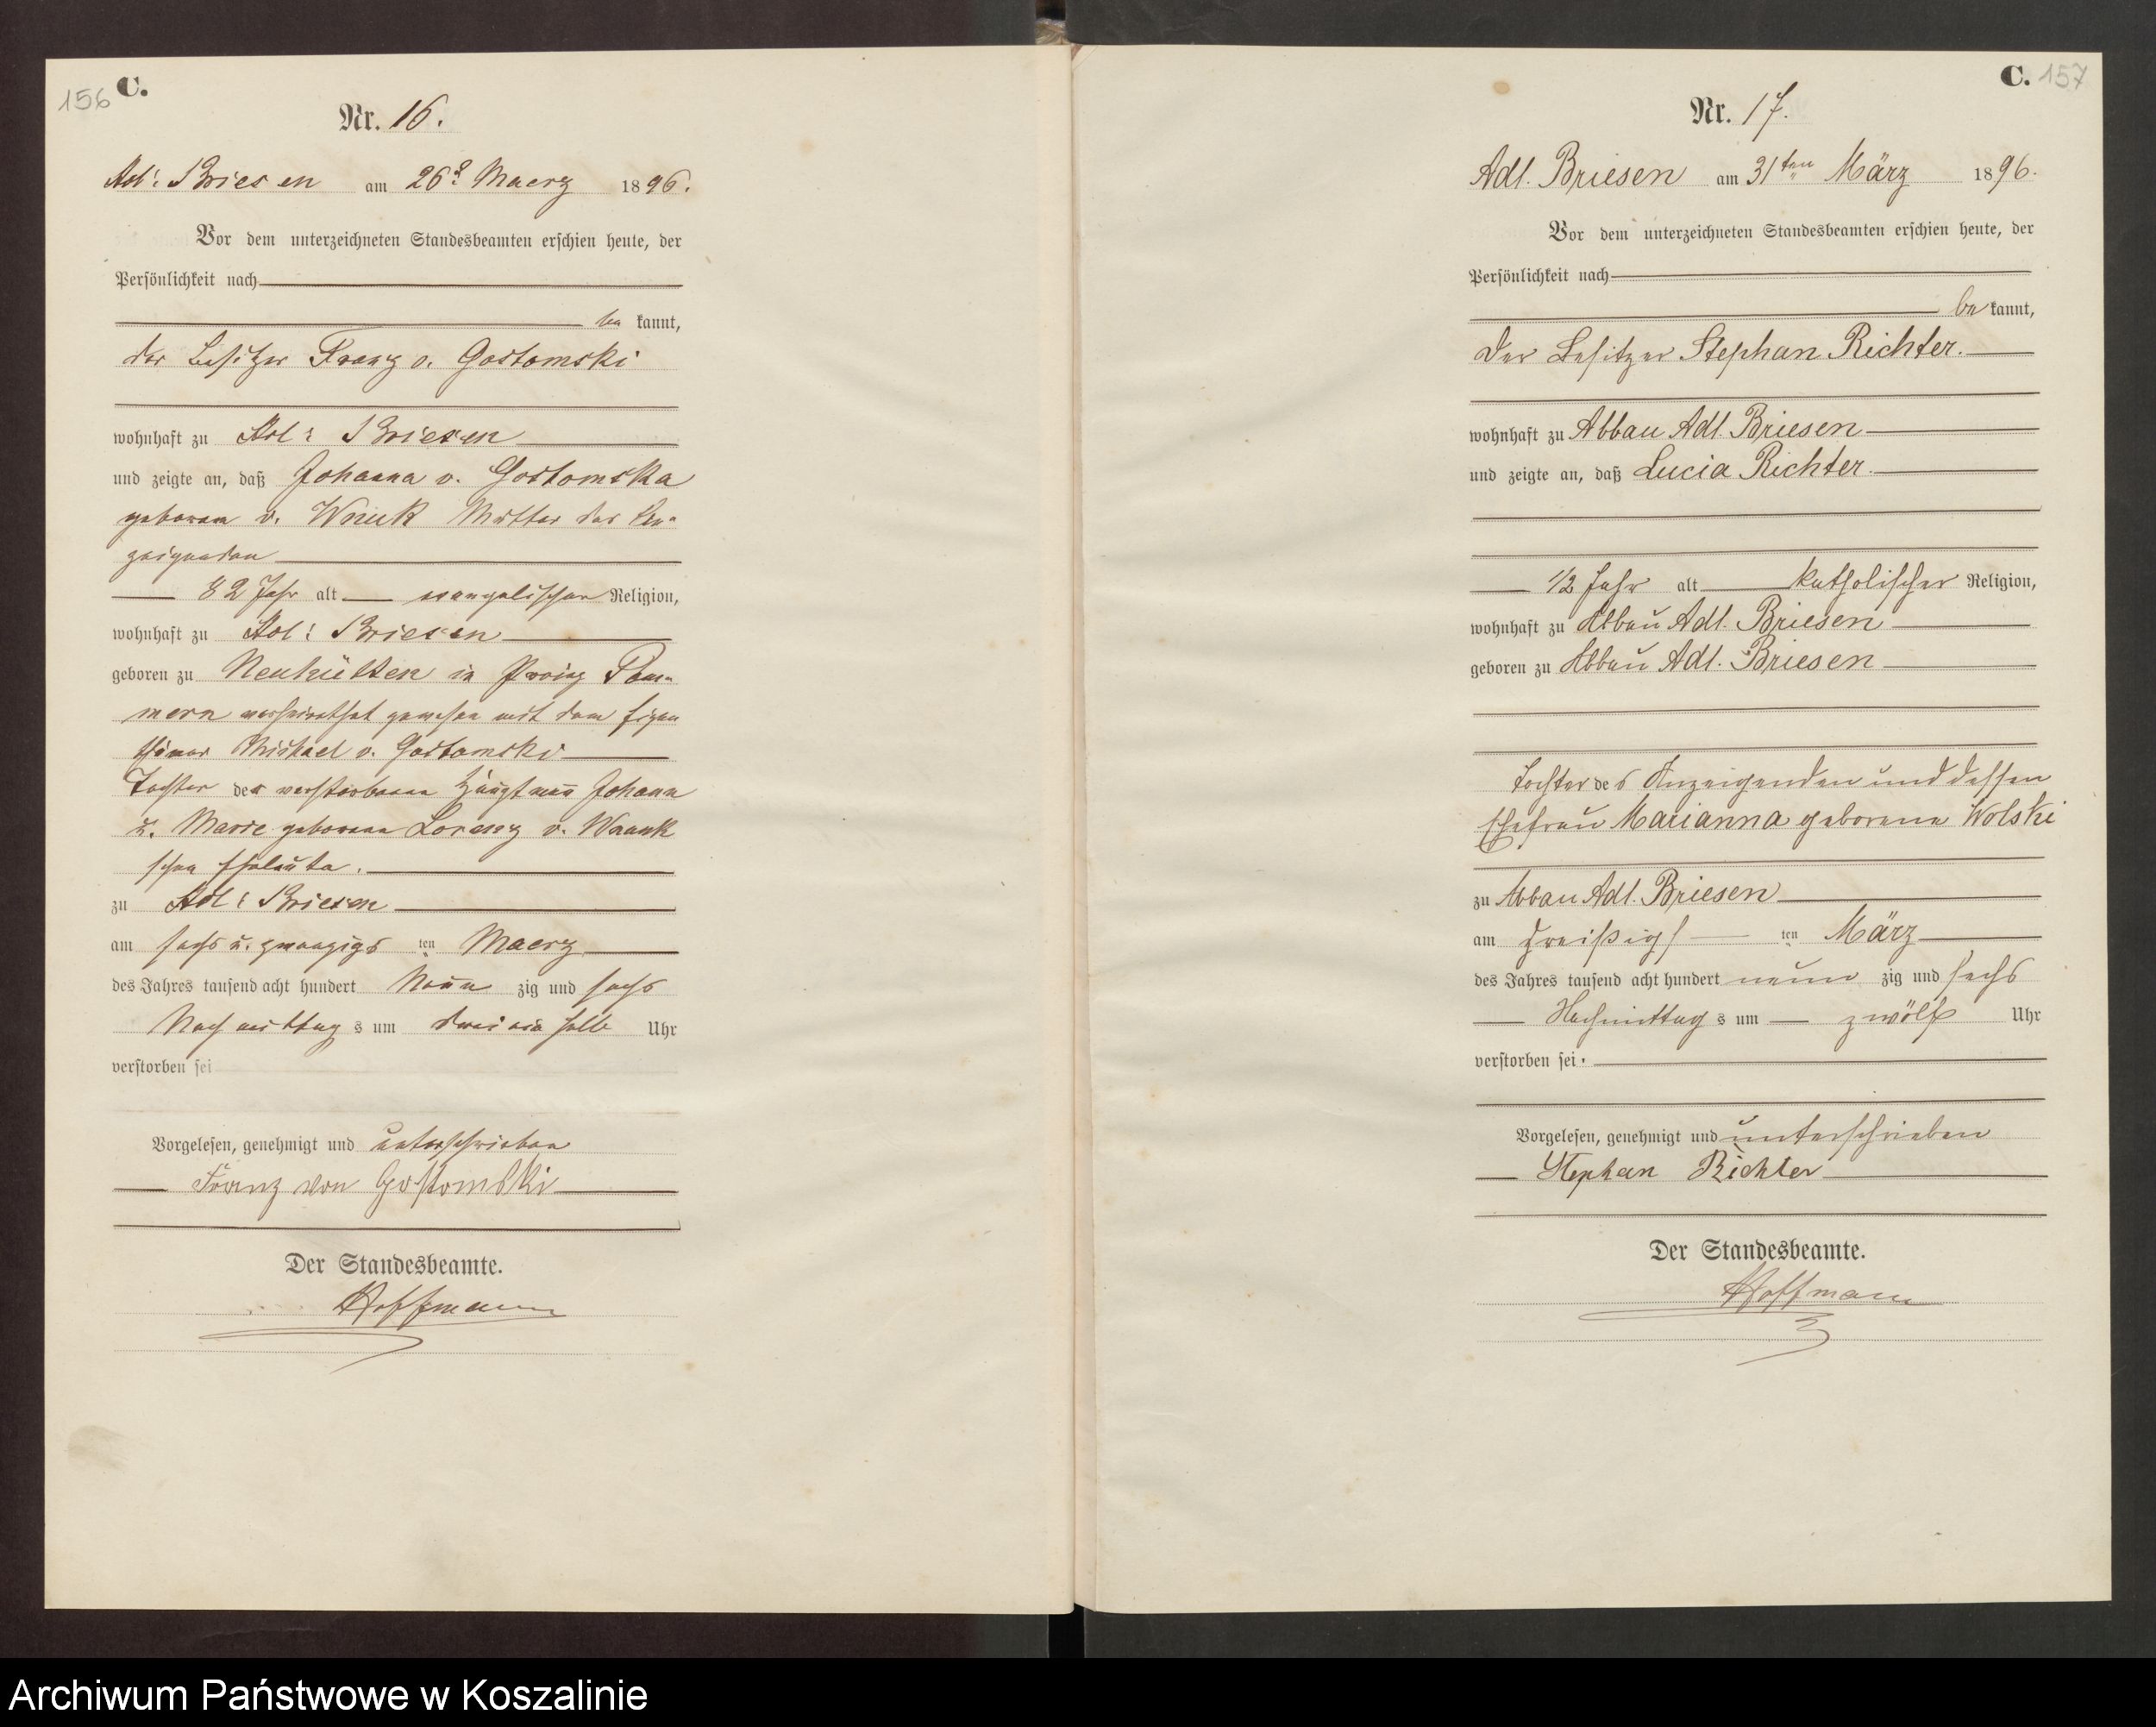 156 C.
Nr. 16.
Adl: Briesen am 26t Maerz 1896.
Vor dem unterzeichneten Standesbeamten erschien heute, der
Persönlichkeit nach
be kannt,
der Besitzer Franz v. Gostomski
wohnhaft zu Adl: Briesen
und zeigte an, daß Johanna v. Gostomska
geborene v. Wnuk Mutter des An-
zeigenden
82 Jahr alt evangelischer Religion,
wohnhaft zu Adl: Briesen
geboren zu Neuhütten in Provinz Pom-
mern verheirathet gewesen mit dem Eigen
thümer Michael v. Gostomski
Tochter der verstorbenen Johann
u. Marie geborene Lorenz v.
schen Eheleute.
zu Adl: Briesen
am sechs u. zwanzigs ten Maerz
des Jahres tausend acht hundert Neun zig und sechs
Nachmittag s um drei ein halb Uhr
verstorben sei
Vorgelesen, genehmigt und unterschrieben
Franz von Gostomski
Der Standesbeamte.
Hoffmann
C. 157
Nr. 17.
Adl. Briesen am 31ten März 1896.
Vor dem unterzeichneten Standesbeamten erschien heute, der
Persönlichkeit nach
be kannt,
der Besitzer Stephan Richter.
wohnhaft zu Abbau Adl. Briesen
und zeigte an, daß Lucia Richter.
1/2 Jahr alt katholischer Religion,
wohnhaft zu Abbau Adl. Briesen
geboren zu Abbau Adl. Briesen
Tochter des Anzeigenden und dessen
Ehefrau Marianna geborene Wolski
zu Abbau Adl. Briesen
am dreißigs ten März
des Jahres tausend acht hundert neun zig und sechs
Nachmittag s um zwölf Uhr
verstorben sei.
Vorgelesen, genehmigt und unterschrieben
Stephan Richter
Der Standesbeamte.
Hoffmann
Archiwum Państwowe w Koszalinie